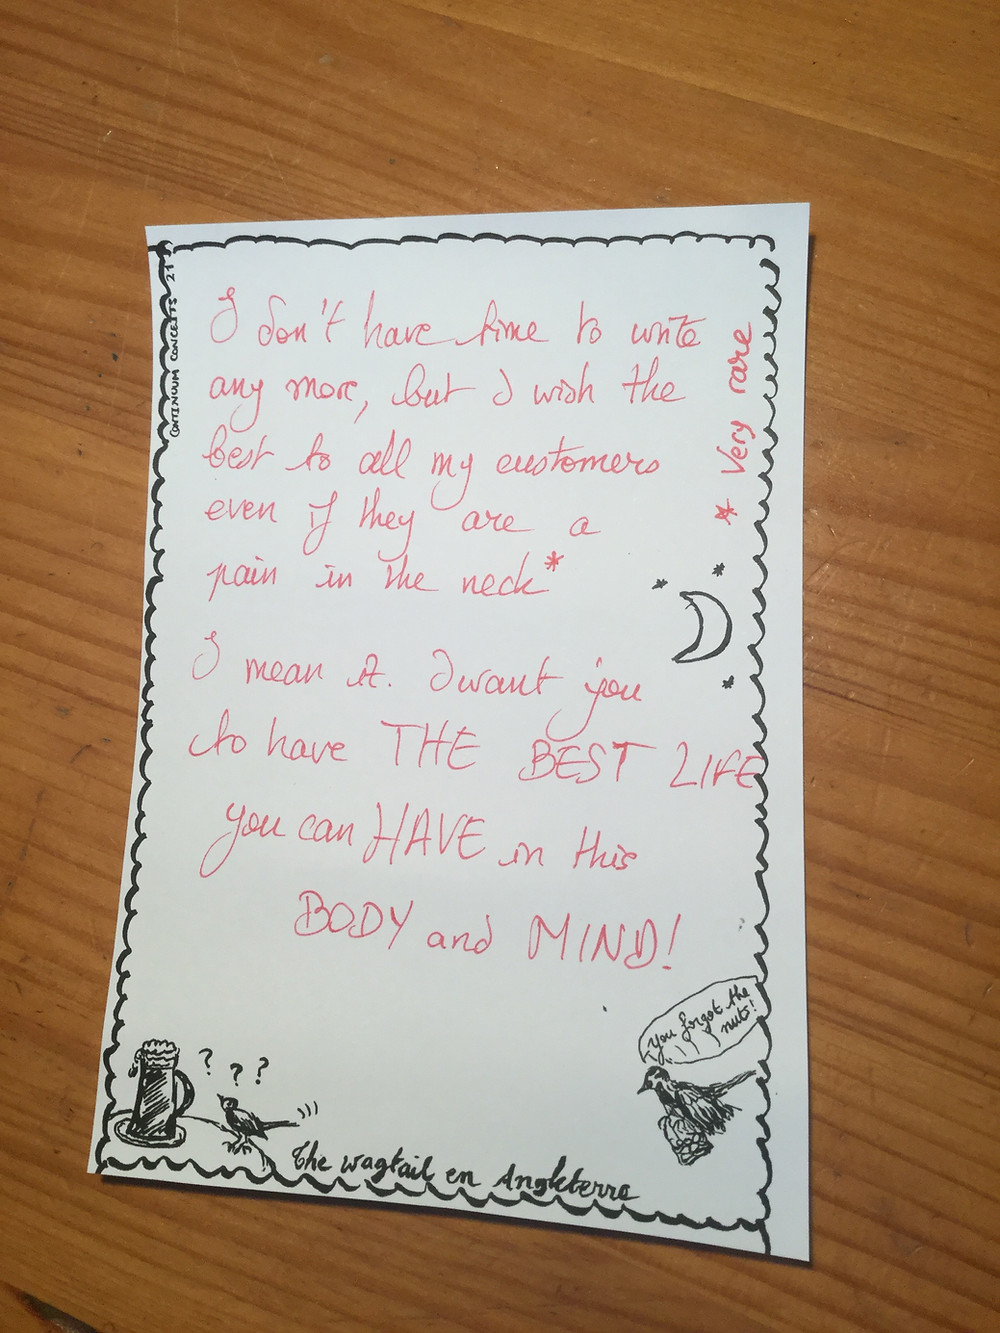 CONTINUUM CONCEPTS 21
I don't have time to write
any more, but I wish the
best to all my customers
even if they are a
pain in the neck*
* Very rare
I mean it. I want you
to have THE BEST LIFE
you can HAVE in this
BODY and MIND!
You forgot the
nuts!
? ? ?
The wagtail en Angleterre